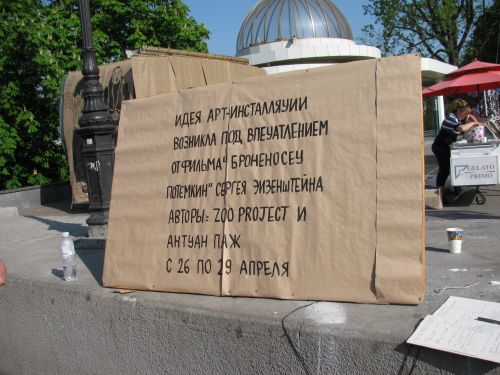 ИДЕЯ АРТ-ИНСТАЛЛЯУИИ
ВОЗНИКЛА ПОД ВПЕУАТЛЕНИЕМ
ОТ ФИЛЬМА "БРОНЕНОСЕУ
ПОТЕМКИН" СЕРГЕЯ ЭИЗЕНШТЕЙНА
АВТОРЫ: ZOO PROJECT И
АНТУАН ПАЖ
С 26 ПО 29 АПРЕЛЯ
GELATO
PRIMO